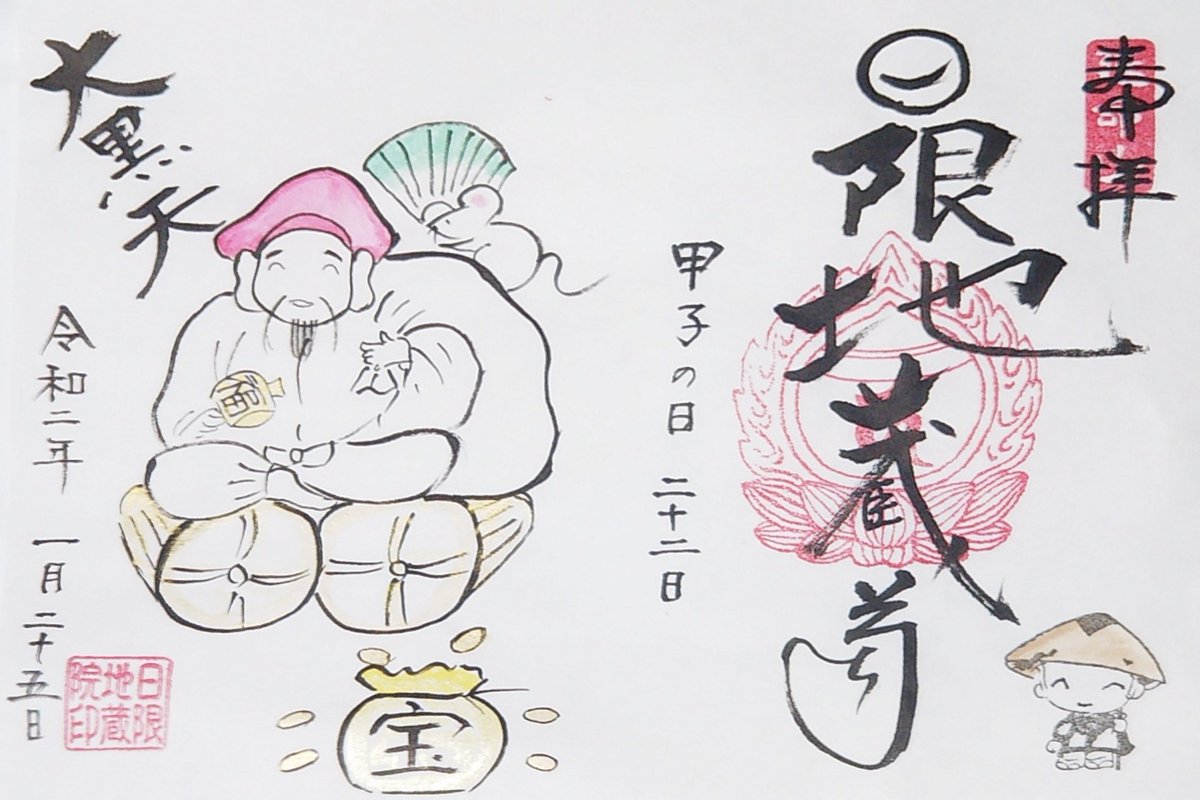 奉拝
日限地蔵尊
甲子の日 二十二日
大黒天
令和二年 一月二十五日
日限
地蔵
院印
宝